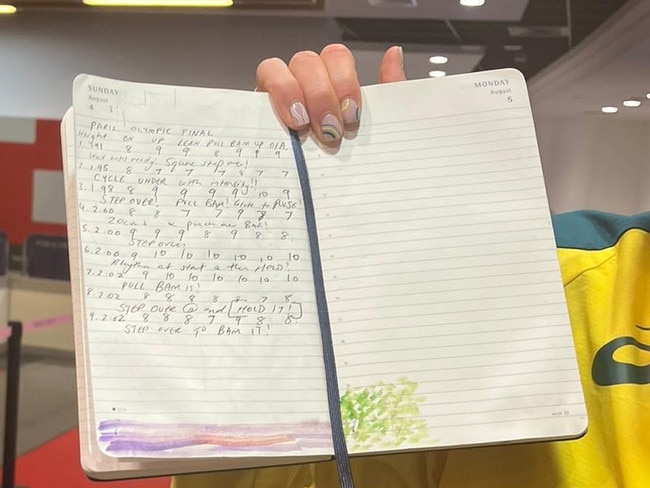 SUNDAY
August
4
PARIS OLYMPIC FINAL
Height ON UP LEAN PULL BAM UP O/A
1. 1.91 8 9 9 8 9 9 9
ready. Square step over!
2. 1.95 8 7 7 7 7 7
CYCLE UNDER with intensity!!
3. 1.98 8 9 9 9 9 10 9
STEP OVER! PULL BAM! Glute to PULSE!
4. 2.00 8 7 7 9 8 7
BAR!
5. 2.00 9 9 9 8 9 8 8
STEP over
6. 2.00 9 10 10 10 10 10 10
Rhythm at start & then HOLD!
7. 2.02 9 10 10 10 10 10 10
PULL BAM IS!
8. 2.02 8 8 8 8 8 7 8
STEP OVER @ end HOLD IT!
9. 2.02 8 8 8 7 9 8 8
STEP OVER TO BAM IT!
MONDAY
August
5